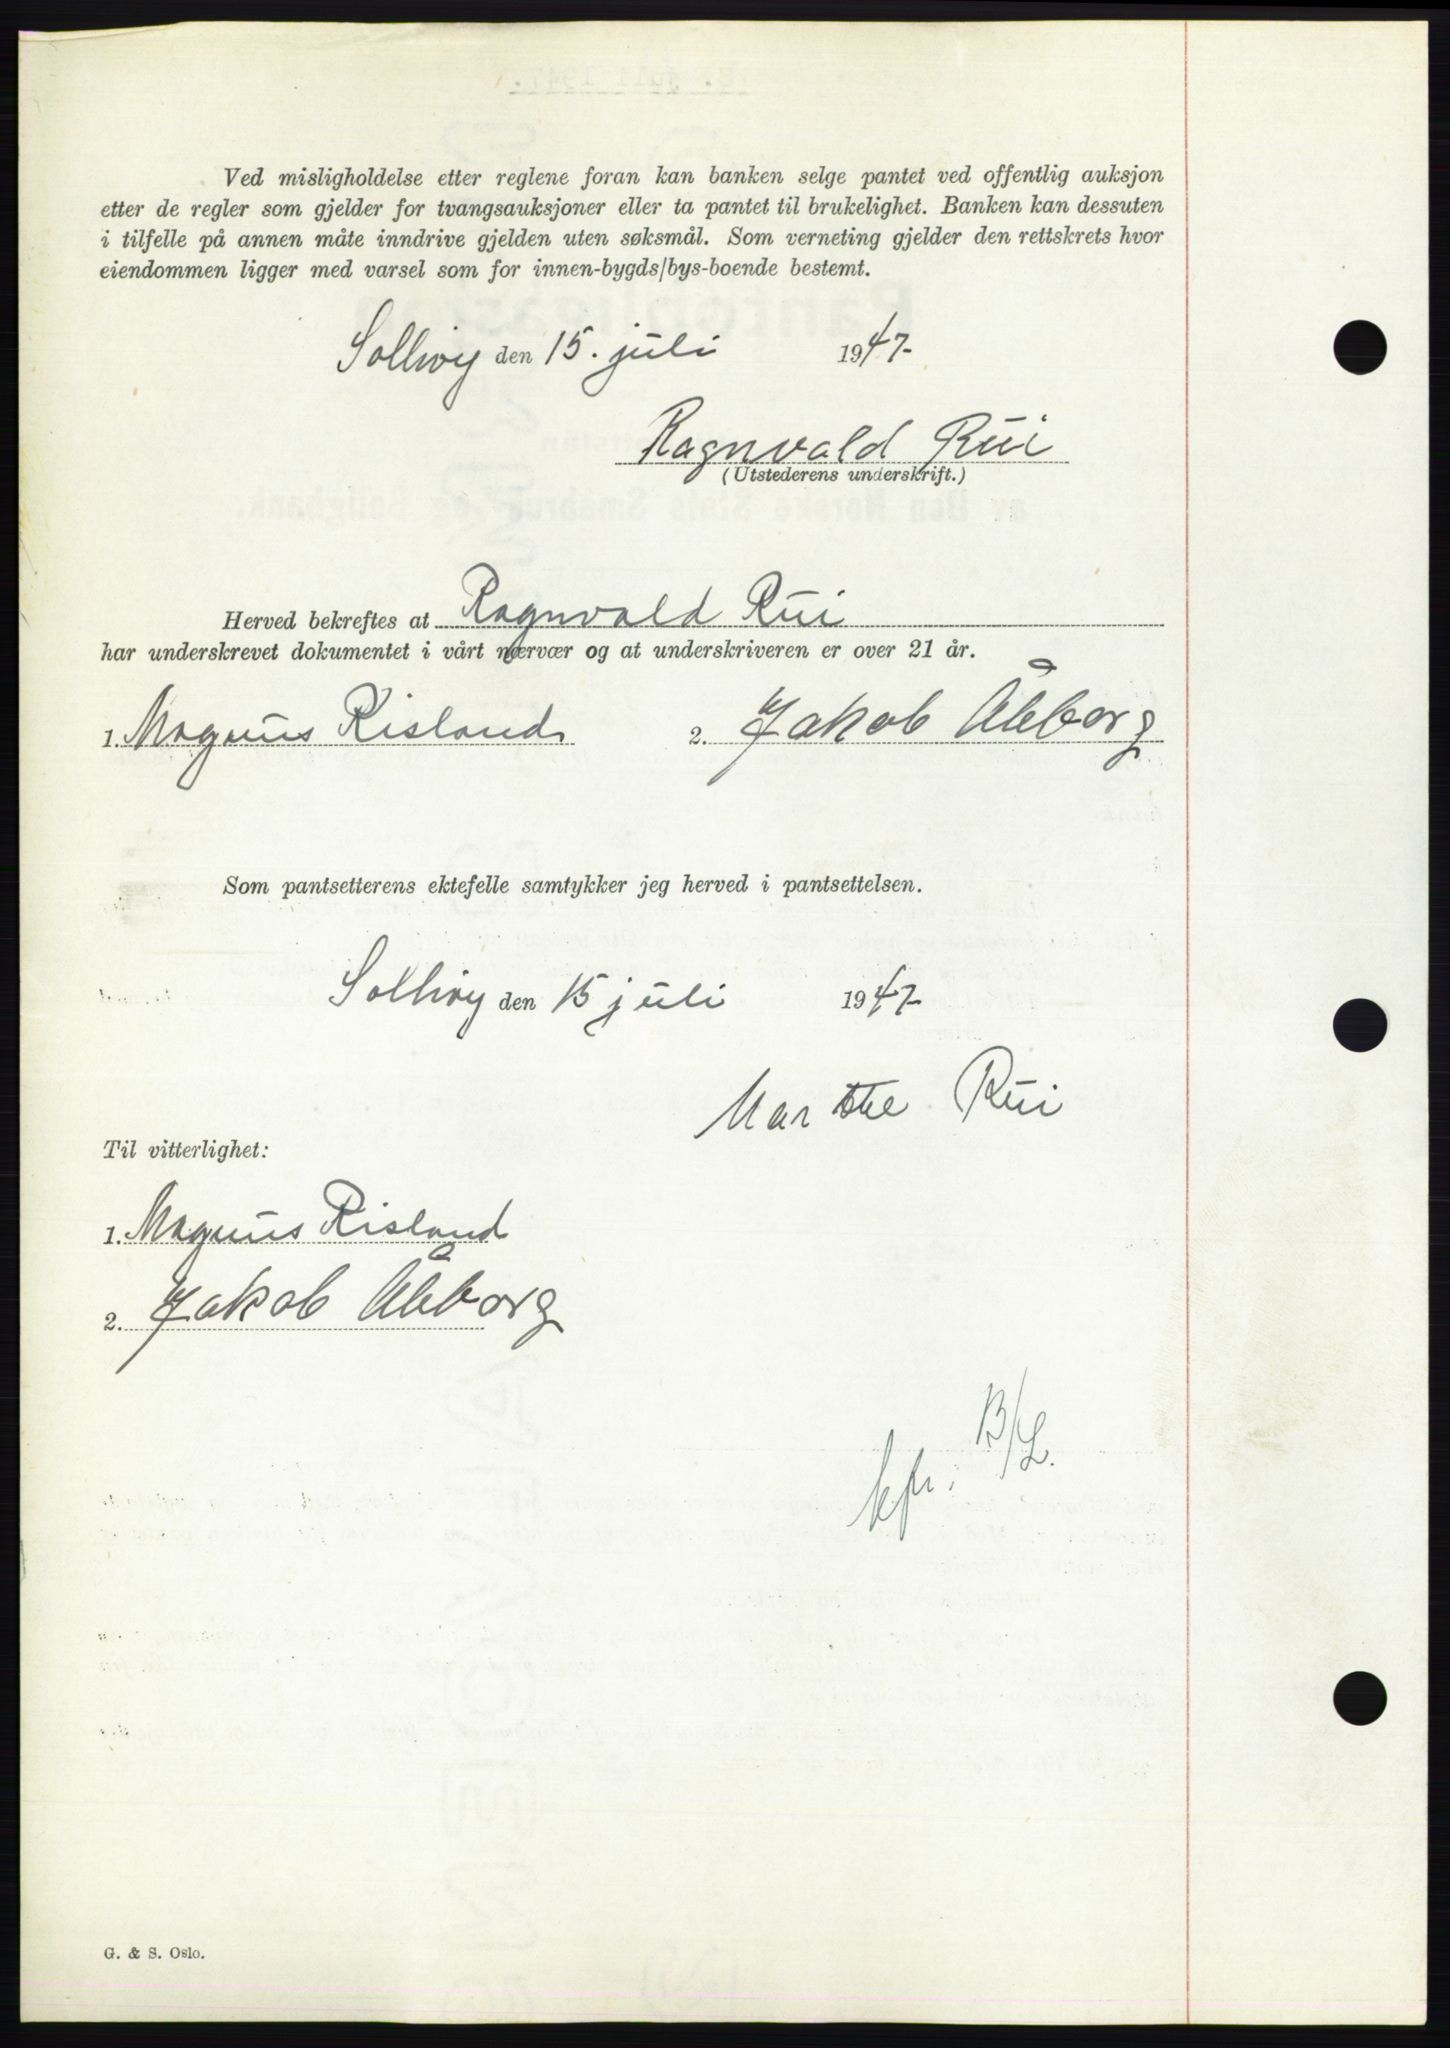 Ved misligholdelse etter reglene foran kan banken selge pantet ved offentlig auksjon
etter de regler som gjelder for tvangsauksjoner eller ta pantet til brukelighet. Banken kan dessuten
i tilfelle på annen måte inndrive gjelden uten søksmål. Som verneting gjelder den rettskrets hvor
eiendommen ligger med varsel som for innen-bygds/bys-boende bestemt.
den 15. juli 1947-
Ragnvald Rui
(Utstederens underskrift.)
Herved bekreftes at Ragnvald Rui
har underskrevet dokumentet i vårt nærvær og at underskriveren er over 21 år.
1. Magnus Risland 2. Jakob Åbborg
Som pantsetterens ektefelle samtykker jeg herved i pantsettelsen.
den 15 juli 1947-
Marthe Rui
Til vitterlighet:
1. Magnus Risland
2. Jakob Åbborg
kfr. B/L.
G. & S. Oslo.